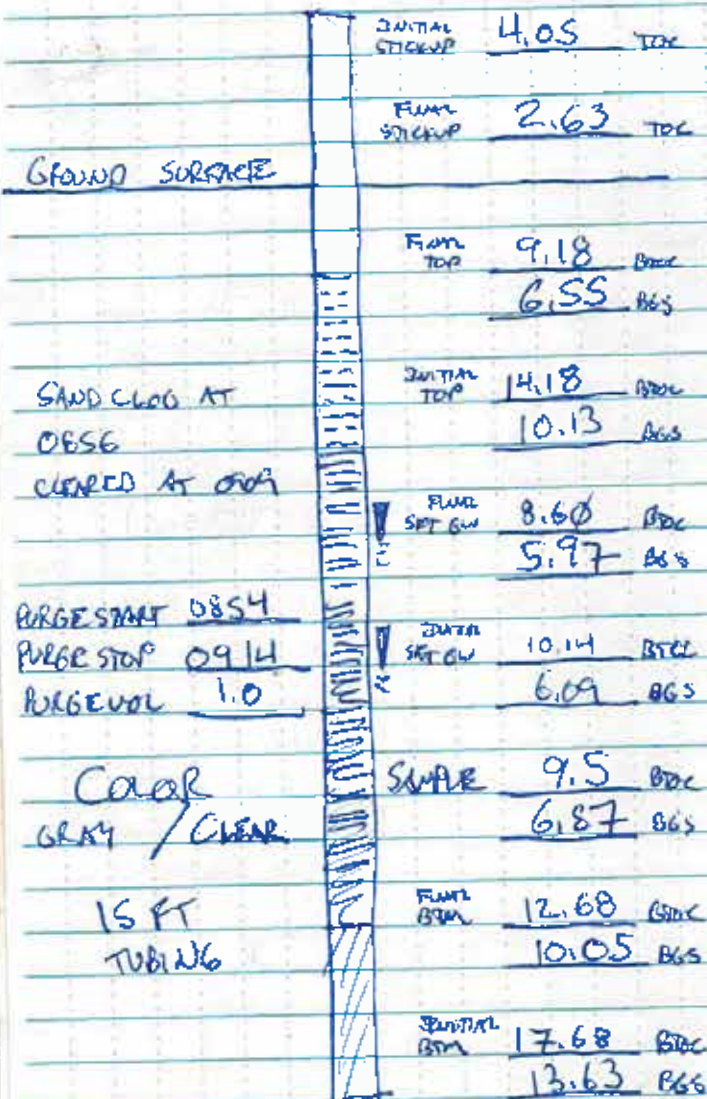 INITIAL STICKUP 4.05 TOC
FINAL STICKUP 2.63 TOC
GROUND SURFACE
FINAL TOP 9.18 BTOC
6.55 BGS
INITIAL TOP 14.18 BTOC
10.13 BGS
SAND CLOG AT
0856
CLEARED AT 0909
FINAL SET GW 8.60 BTOC
5.97 BGS
PURGE START 0854
PURGE STOP 0914
PURGE VOL 1.0
INITIAL SET GW 10.14 BTOC
6.09 BGS
COLOR
GRAY / CLEAR
SAMPLE 9.5 BTOC
6.87 BGS
15 FT
TUBING
FINAL BTM 12.68 BTOC
10.05 BGS
INITIAL BTM 17.68 BTOC
13.63 BGS